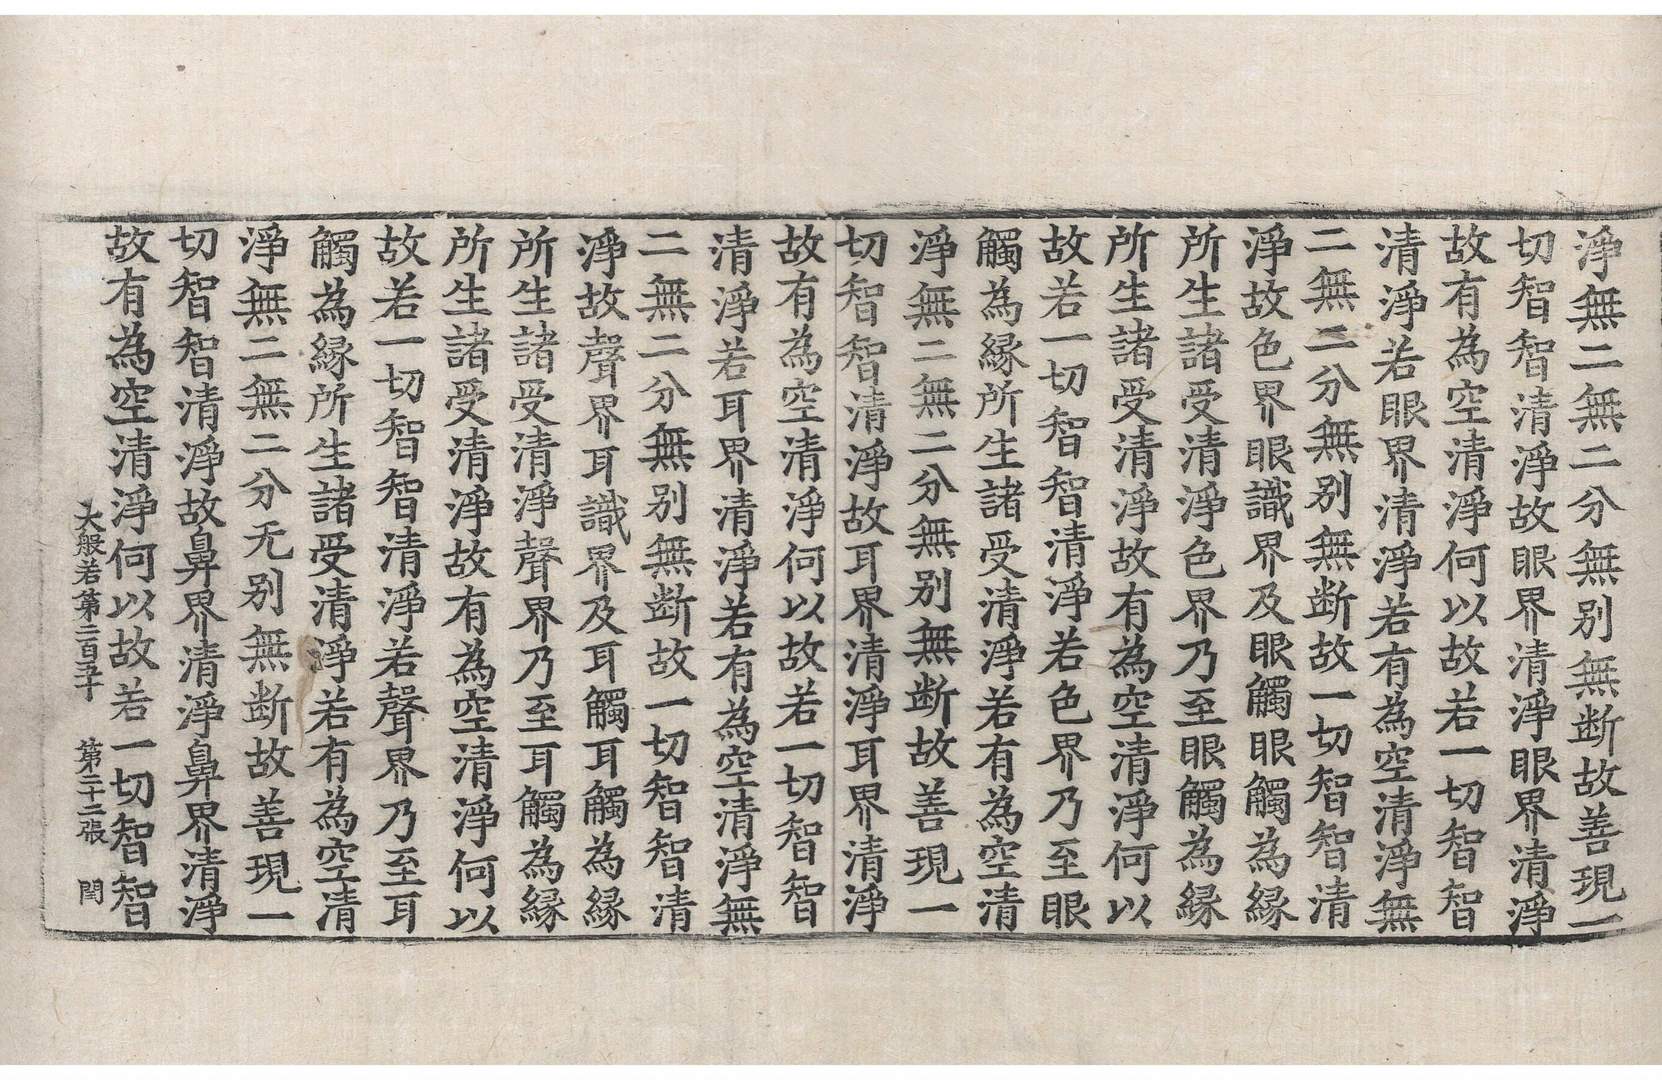 淨無二無二分無别無断故善現一
切智智清淨故眼界清淨眼界清淨
故有為空清淨何以故若一切智智
清淨若眼界清淨若有為空清淨無
二無二分無别無断故一切智智清
淨故色界眼識界及眼觸眼觸為縁
所生諸受清淨色界乃至眼觸為縁
所生諸受清淨故有為空清淨何以
故若一切智智清淨若色界乃至眼
觸為縁所生諸受清淨若有為空清
淨無二無二分無别無断故善現一
切智智清淨故耳界清淨耳界清淨
故有為空清淨何以故若一切智智
清淨若耳界清淨若有為空清淨無
二無二分無别無断故一切智智清
淨故聲界耳識界及耳觸耳觸為縁
所生諸受清淨聲界乃至耳觸為縁
所生諸受清淨故有為空清淨何以
故若一切智智清淨若聲界乃至耳
觸為縁所生諸受清淨若有為空清
淨無二無二分无别無断故善現一
切智智清淨故鼻界清淨鼻界清淨
故有為空清淨何以故若一切智智
大般若第二百五十 第二十二張 閏